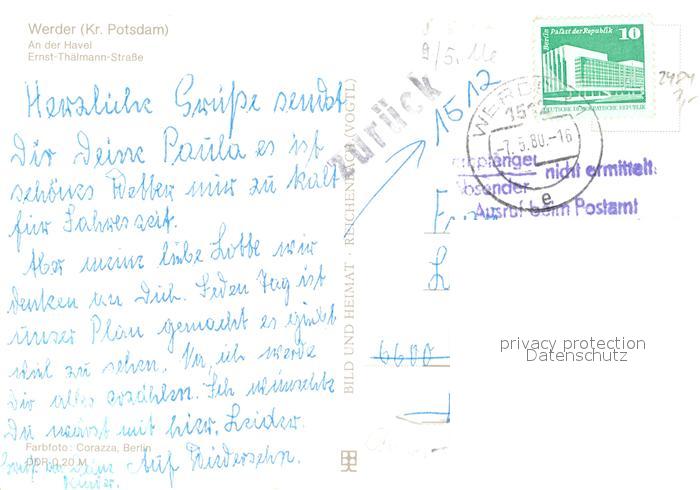 Werder (Kr. Potsdam)
An der Havel
Ernst-Thälmann-Straße
Herzliche Grüße sendet
Dir Deine Paula es ist
schönes Wetter nur zu kalt
für Jahreszeit.
Aber meine liebe Lotte wir
denken an Dich. Jeden Tag ist
unser Plan gemacht es giebt
viel zu sehen. Na, ich werde
Dir alles erzählen. Ich wünschte
Du wärst mit hier. Leider.
Auf Wiedersehn.
Farbfoto: Corazza, Berlin
DDR 0,20 M
Kinder.
BILD UND HEIMAT · REICHENBACH (VOGTL)
zurück
1512
Berlin Palast der Republik 10
DEUTSCHE DEMOKRATISCHE REPUBLIK
WERDER
1512
-7.5.80.-16
e
Empfänger nicht ermittelt
Absender
Ausruf beim Postamt
6600
privacy protection
Datenschutz